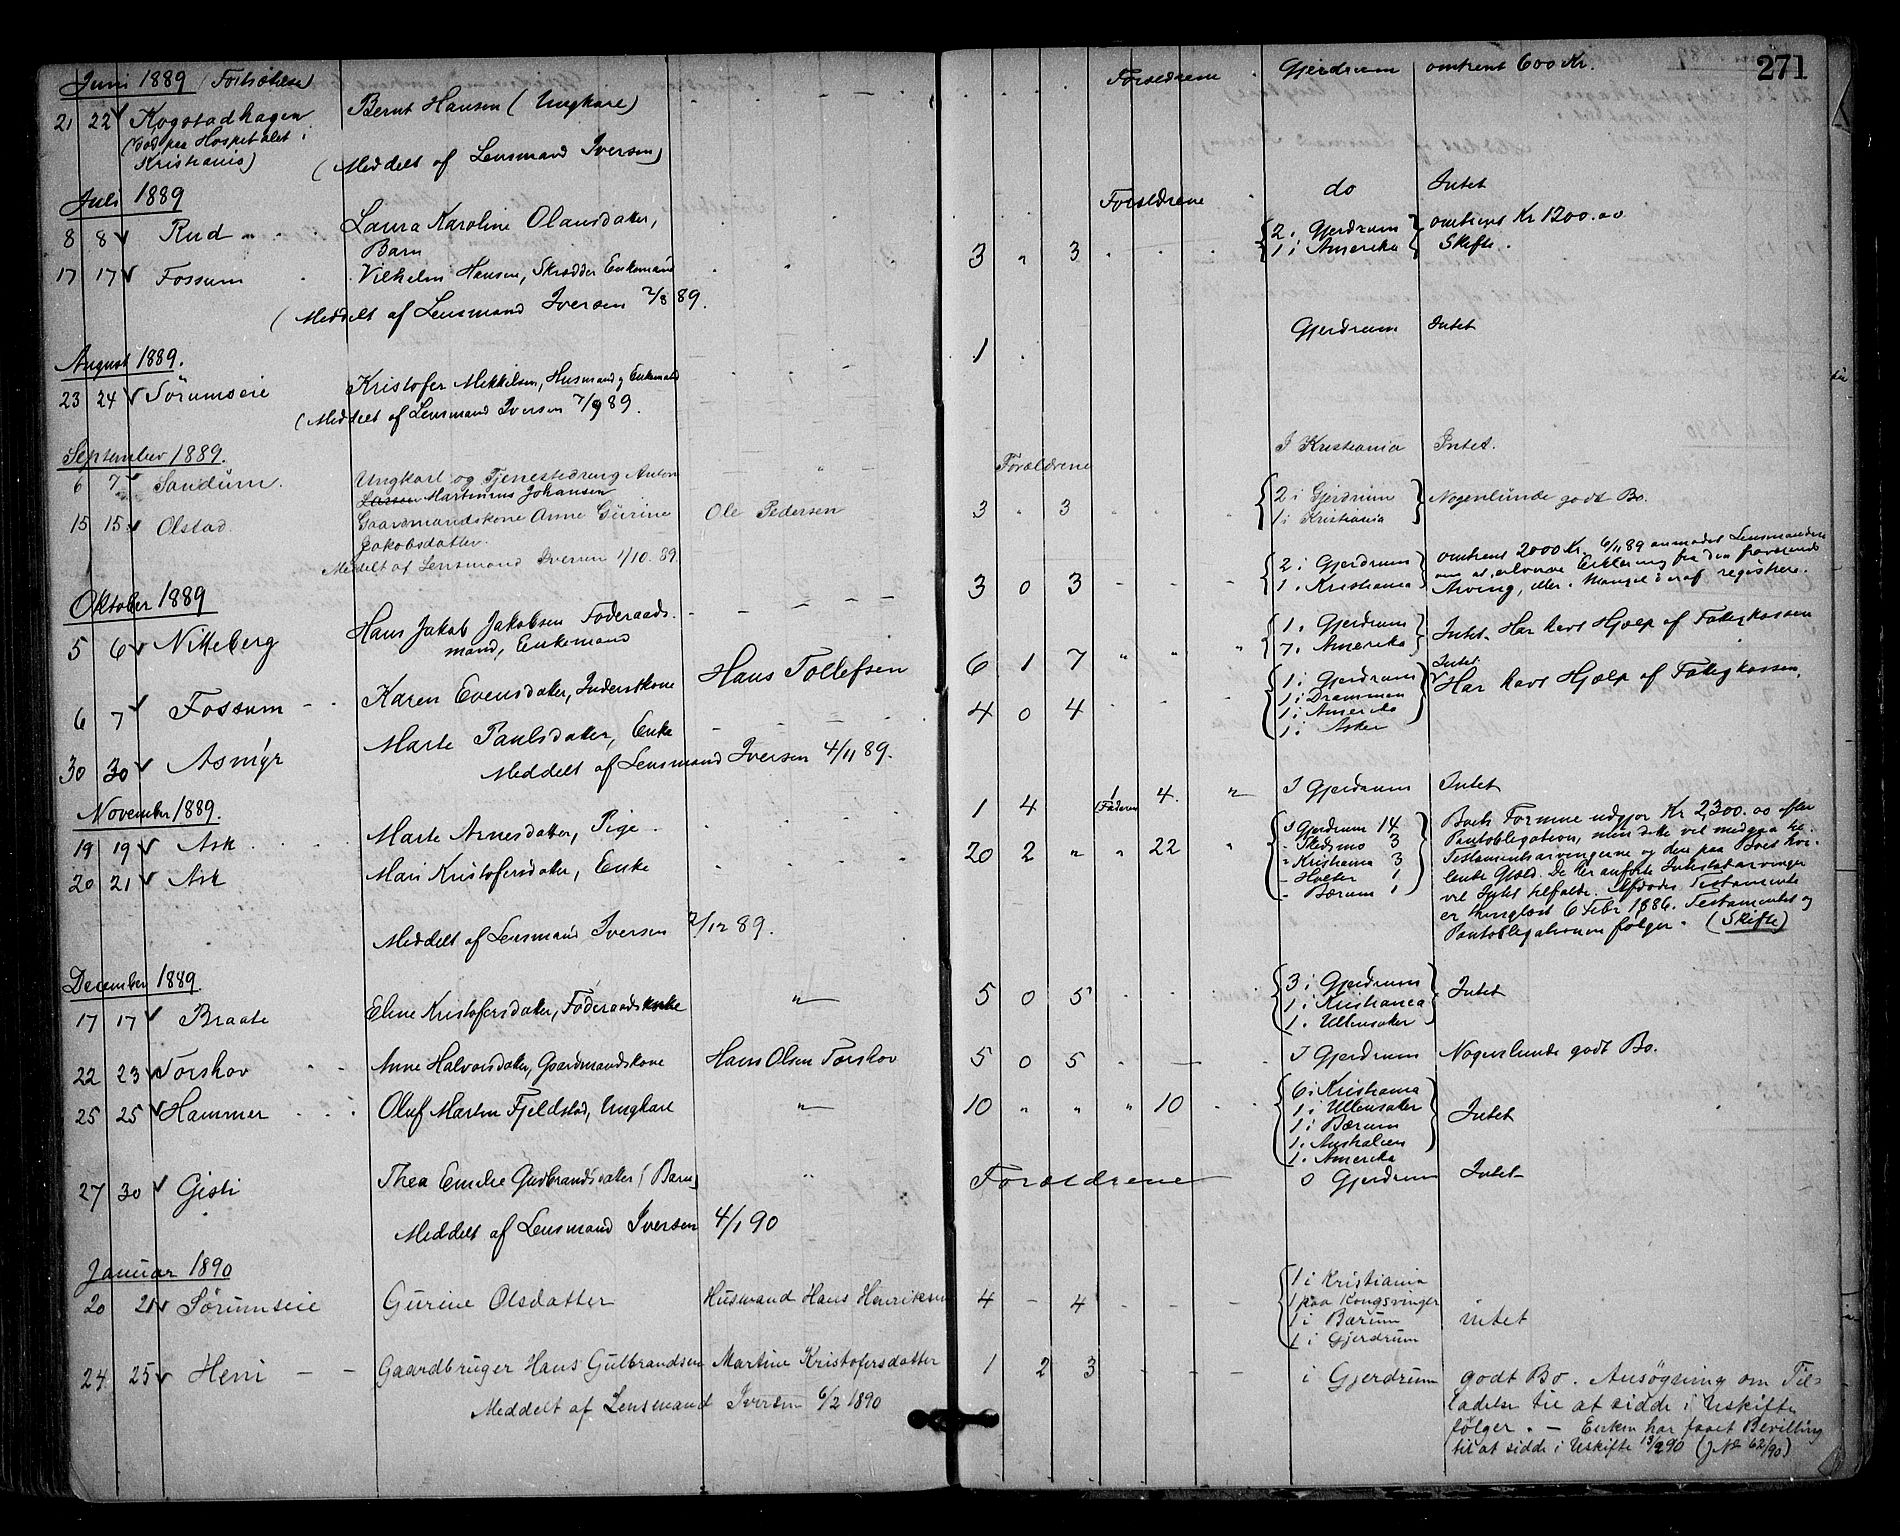 271
Juni 1889 (Fortsættelse)
21 22 Kogstadhagen Bernt Hansen (Ungkarl) Forældrene Gjerdrum omtrent 600 Kr.
(død paa Hospitalet i
Kristiania)
(Meddelt af Lensmand Iversen)
Juli 1889
8 8 Rud Laura Karoline Olausdatter, Forældrene do Intet
Barn
17 17 Fossum Vilhelm Hansen, Skrædder Enkemand 3 " 3 2 i Gjerdrum omtrent Kr 1200.00
1 i Amerika Skifte.
(Meddelt af Lensmand Iversen 2/8 89.
August 1889.
23 24 Sörumseie Kristofer Mikkelsen, Husmand og Enkemand 1 Gjerdrum Intet
(Meddelt af Lensmand Iversen 7/9 89.
September 1889.
6 7 Sandum. Ungkarl og Tjenestedreng Anton Forældrene I Kristiania Intet.
Larsen Martinius Johansen
15 15 Olstad. Gaardmandskone Anne Gurine Ole Pedersen 3 " 3 2 i Gjerdrum Nogenlunde godt Bo.
Jakobsdatter. 1 i Kristiania
Meddelt af Lensmand Iversen 1/10. 89.
Oktober 1889
5 6 Nitteberg Hans Jakob Jakobsen Föderaads- 3 0 3 2 i Gjerdrum omtrent 2000 Kr. 6/11 89 anmodet Lensmanden
mand, Enkemand 1 i Kristiania om at erhverve Erklæring fra den fraværende
Arving, eller i Mangel heraf registrere.
6 7 Fossum Karen Evensdatter, Inderstkone Hans Tollefsen 6 1 7 " " " 1 i Gjerdrum Intet. Har havt Hjælp af Fattigkassen
7 i Amerika
30 30 Asmyr Marte Paulsdatter, Enke 4 0 4 1 i Gjerdrum Intet.
1 i Drammen Har havt Hjælp af Fattigkassen.
1 i Amerika
1 i Asker
Meddelt af Lensmand Iversen 4/11 89.
November 1889.
19 19 Ask Marte Arnesdatter, Pige 1 4 1 (Faderen 4. " I Gjerdrum Intet
20 21 Ask Mari Kristofersdatter, Enke 20 2 " " 22 " I Gjerdrum 14 Boets Formue udgjør Kr 2,300.00 efter
- Skedsmo 3 Pantobligation, men dette vil medgaa til
" Kristiania 3 Testamentsarvingerne og den paa Boet hvi-
- Holter 1 lende Gjæld. De her anførte Intestatarvinger
- Bærum 1 vil Intet tilfalde. Afdødes Testamente
er thinglæst 6 Febr 1886. Testamentet og
Pantobligationen følger. (Skifte)
Meddelt af Lensmand Iversen 2/12 89.
December 1889.
17 17 Braate Eline Kristofersdatter, Föderaadsenke " 5 0 5 3 i Gjerdrum Intet
1 i Kristiania
1 i Ullensaker
22 23 Torshov Anne Halvorsdatter, Gaardmandskone Hans Olsen Torshov 5 0 5 I Gjerdrum Nogenlunde godt Bo.
25 25 Hammer Oluf Martin Fjeldstad, Ungkarl " 10 " " " 10 6 i Kristiania Intet
1 i Ullensaker
1 i Bærum
1 i Australien
1 i Amerika
27 30 Gisti Thea Emilie Gudbrandsdatter (Barn) " Forældrene Gjerdrum Intet
Meddelt af Lensmand Iversen 4/1 90
Januar 1890
20 21 Sörumseie Gurine Olsdatter Husmand Hans Henriksen 4 - 4 1 i Kristiania intet
1 paa Kongsvinger
1 i Bærum
1 i Gjerdrum
24 25 Heni Gaardbruger Hans Gulbrandsen Martine Kristofersdatter 1 2 3 i Gjerdrum godt Bo. Ansögning om Til-
ladelse til at sidde i Uskifte
fölger. - Enken har faaet Bevilling
til at sidde i Uskifte 13/2 90 (J No 62/90)
Meddelt af Lensmand Iversen 6/2 1890